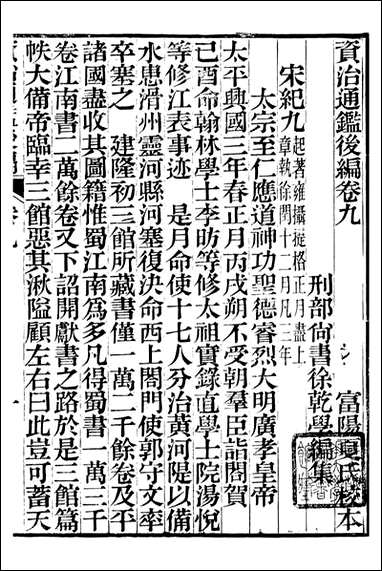 資治通鑑後編卷九
刑部尙書徐乾學編集
富陽夏氏校本
宋紀九
起著雍攝提格正月盡上
章執徐閏十二月凡三年
太宗至仁應道神功聖德睿烈大明廣孝皇帝
太平興國三年春正月丙戌朔不受朝羣臣詣閤賀
己酉命翰林學士李昉等修太祖實錄直學士院湯悅
等修江表事迹 是月命使十七人分治黃河隄以備
水患滑州靈河縣河塞復決命西上閤門使郭守文率
卒塞之 建隆初三館所藏書僅一萬二千餘卷及平
諸國盡收其圖籍惟蜀江南爲多凡得蜀書一萬三千
卷江南書二萬餘卷又下詔開獻書之路於是三館篇
帙大備帝臨幸三館惡其湫隘顧左右曰此豈可蓄天
卷九
一